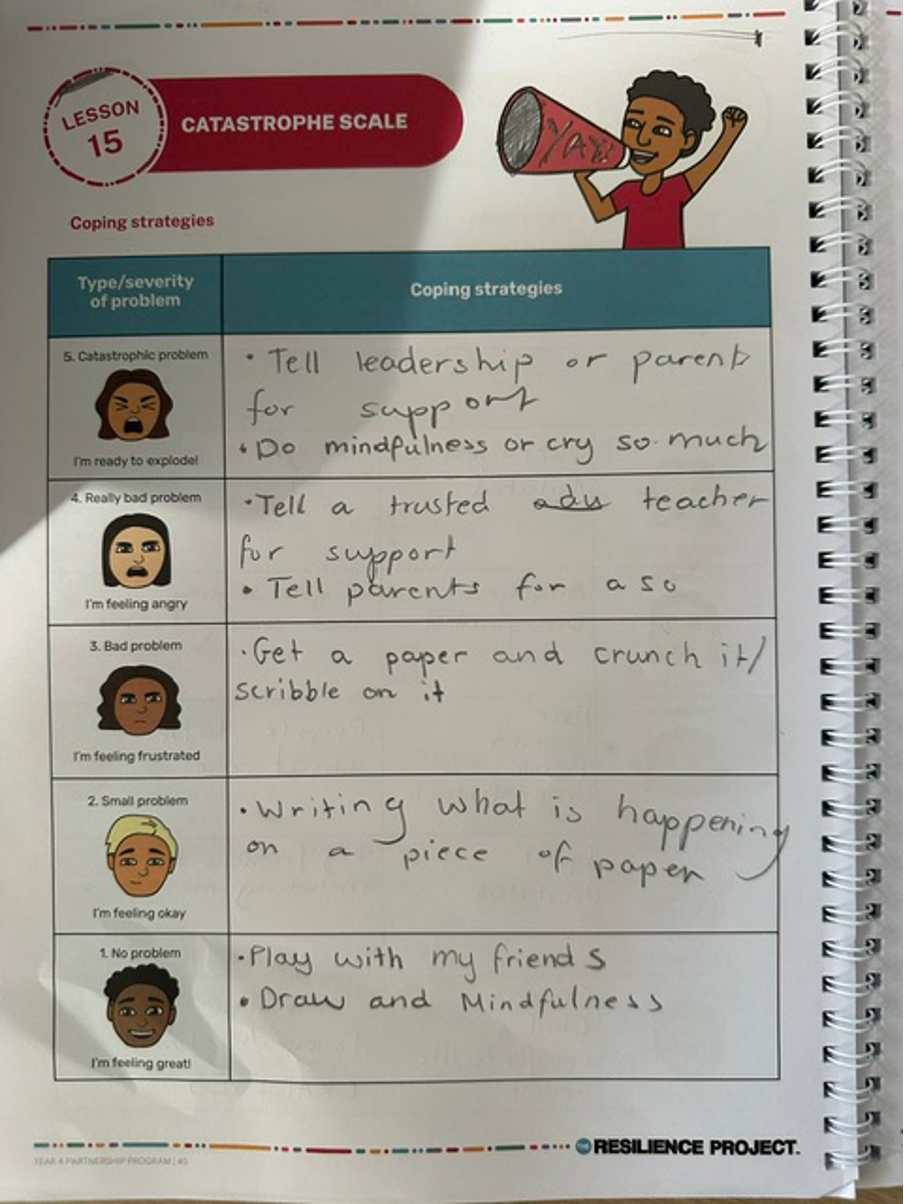 LESSON
15
CATASTROPHE SCALE
YAY!
Coping strategies
Type/severity
of problem
Coping strategies
5. Catastrophic problem
I'm ready to explode!
• Tell leadership or parents
for support
• Do mindfulness or cry so much
4. Really bad problem
I'm feeling angry
• Tell a trusted adu teacher
for support
• Tell parents for a so
3. Bad problem
I'm feeling frustrated
• Get a paper and crunch it/
scribble on it
2. Small problem
I'm feeling okay
• Writing what is happening
on a piece of paper
1. No problem
I'm feeling great!
• Play with my friends
• Draw and Mindfulness
YEAR 4 PARTNERSHIP PROGRAM | 45
THE RESILIENCE PROJECT.